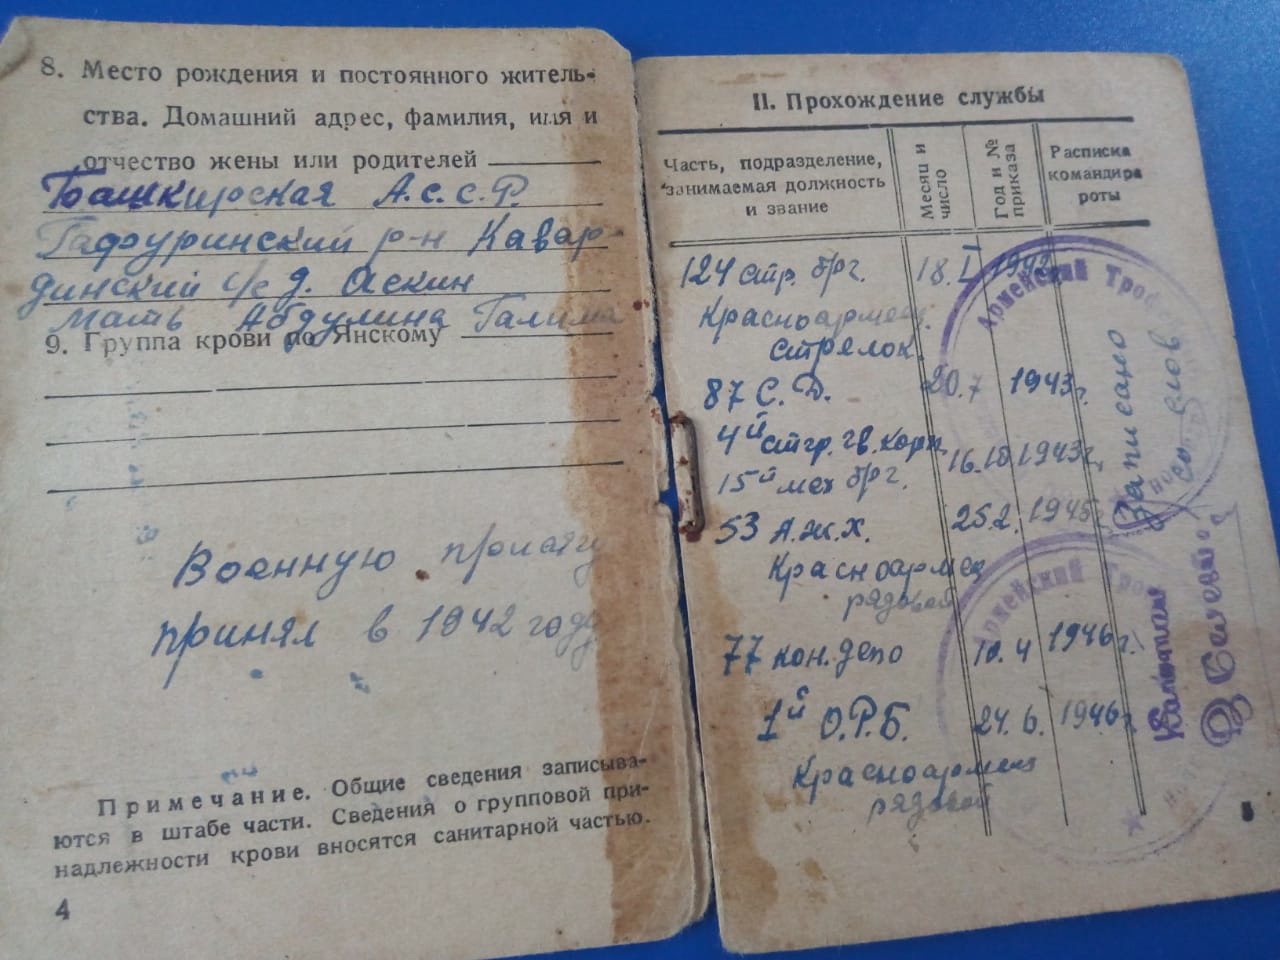 8. Место рождения и постоянного житель-
ства. Домашний адрес, фамилия, имя и
отчество жены или родителей
Башкирская А.С.С.Р.
Гафуринский р-н Кавар-
динский с/с д. Аскин
Мать Абдулина Галима
9. Группа крови по Янскому
Военную присягу
принял в 1942 году
Примечание. Общие сведения записыва-
ются в штабе части. Сведения о групповой при-
надлежности крови вносятся санитарной частью.
4
II. Прохождение службы
Часть, подразделение,
занимаемая должность
и звание
Месяц и
число
Год и №
приказа
Расписка
командира
роты
124 стр. бриг. 18.I 1942
Красноармеец
стрелок.
87 С.Д. 20.7 1943г.
4й стр. гв. корп 16.10.1943г.
15й мех бриг.
53 А.Ж.Х. 25.2. 1945
Красноармеец
рядовой
77 кон. депо 10.4 1946г.
1й О.Р.Б. 24.6. 1946г.
Красноармеец
рядовой
Записано
со слов
Армейский
Армейский
5